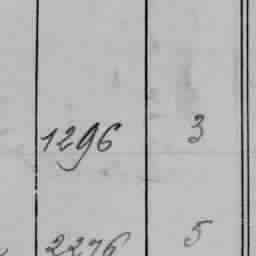 1296 3
2276 5